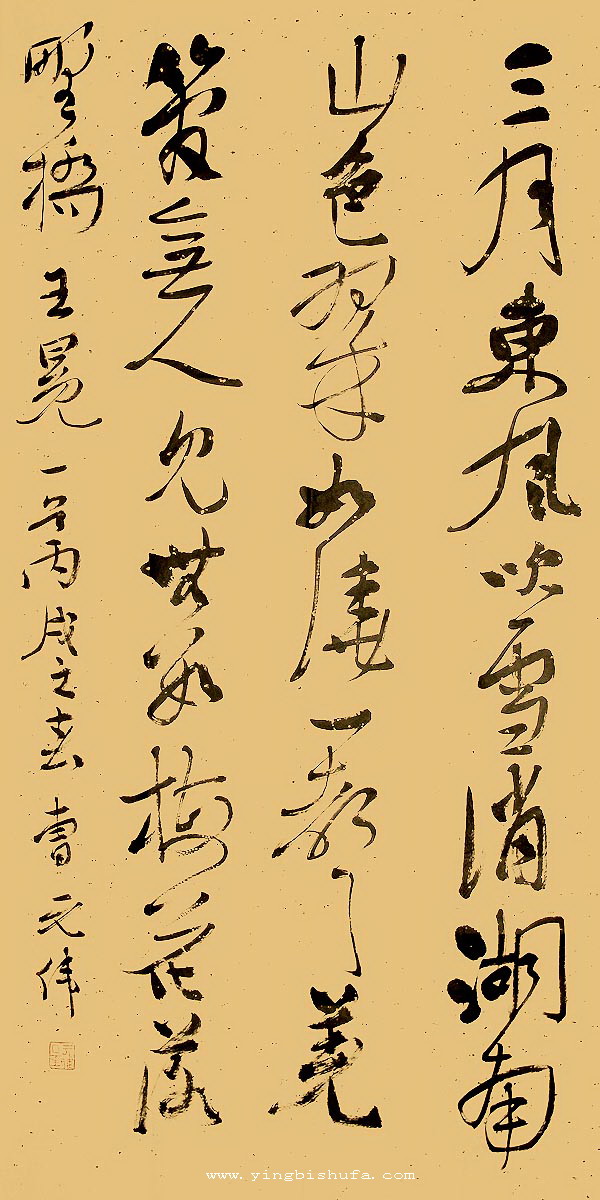 三月東風吹雪消湖南
山色翠如澆一聲羌
管無人見無數梅花落
野橋 王冕一首丙戌之春 曹元偉
www.yingbishufa.com